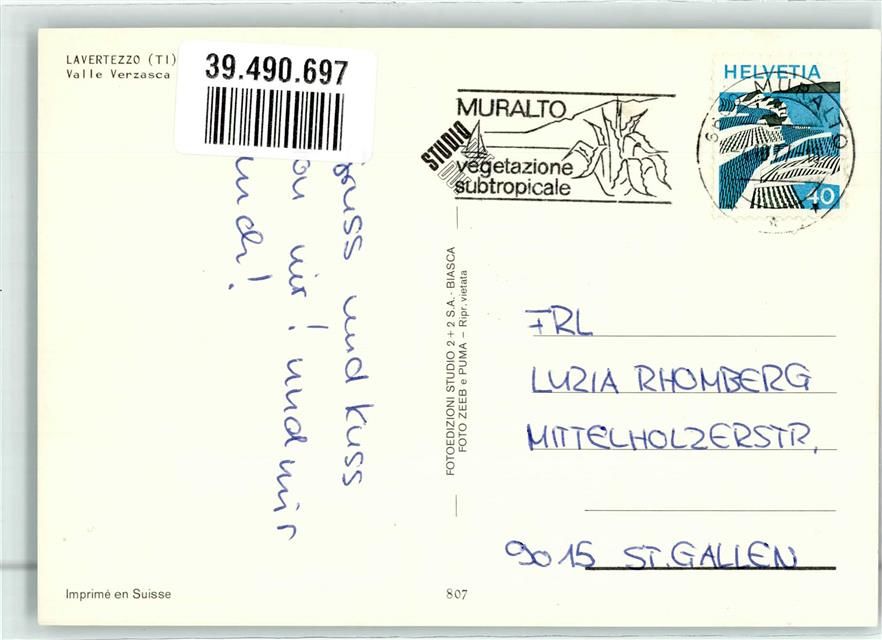 LAVERTEZZO (TI)
Valle Verzasca
39.490.697
MURALTO
STUDIO
vegetazione
subtropicale
HELVETIA
MURALTO
40
und Kuss
mir! und mir
FOTOEDIZIONI STUDIO 2+2 S.A.- BIASCA
FOTO ZEEB e PUMA – Ripr. vietata
FRL
LUZIA RHOMBERG
MITTELHOLZERSTR,
9015 ST.GALLEN
Imprimé en Suisse
807